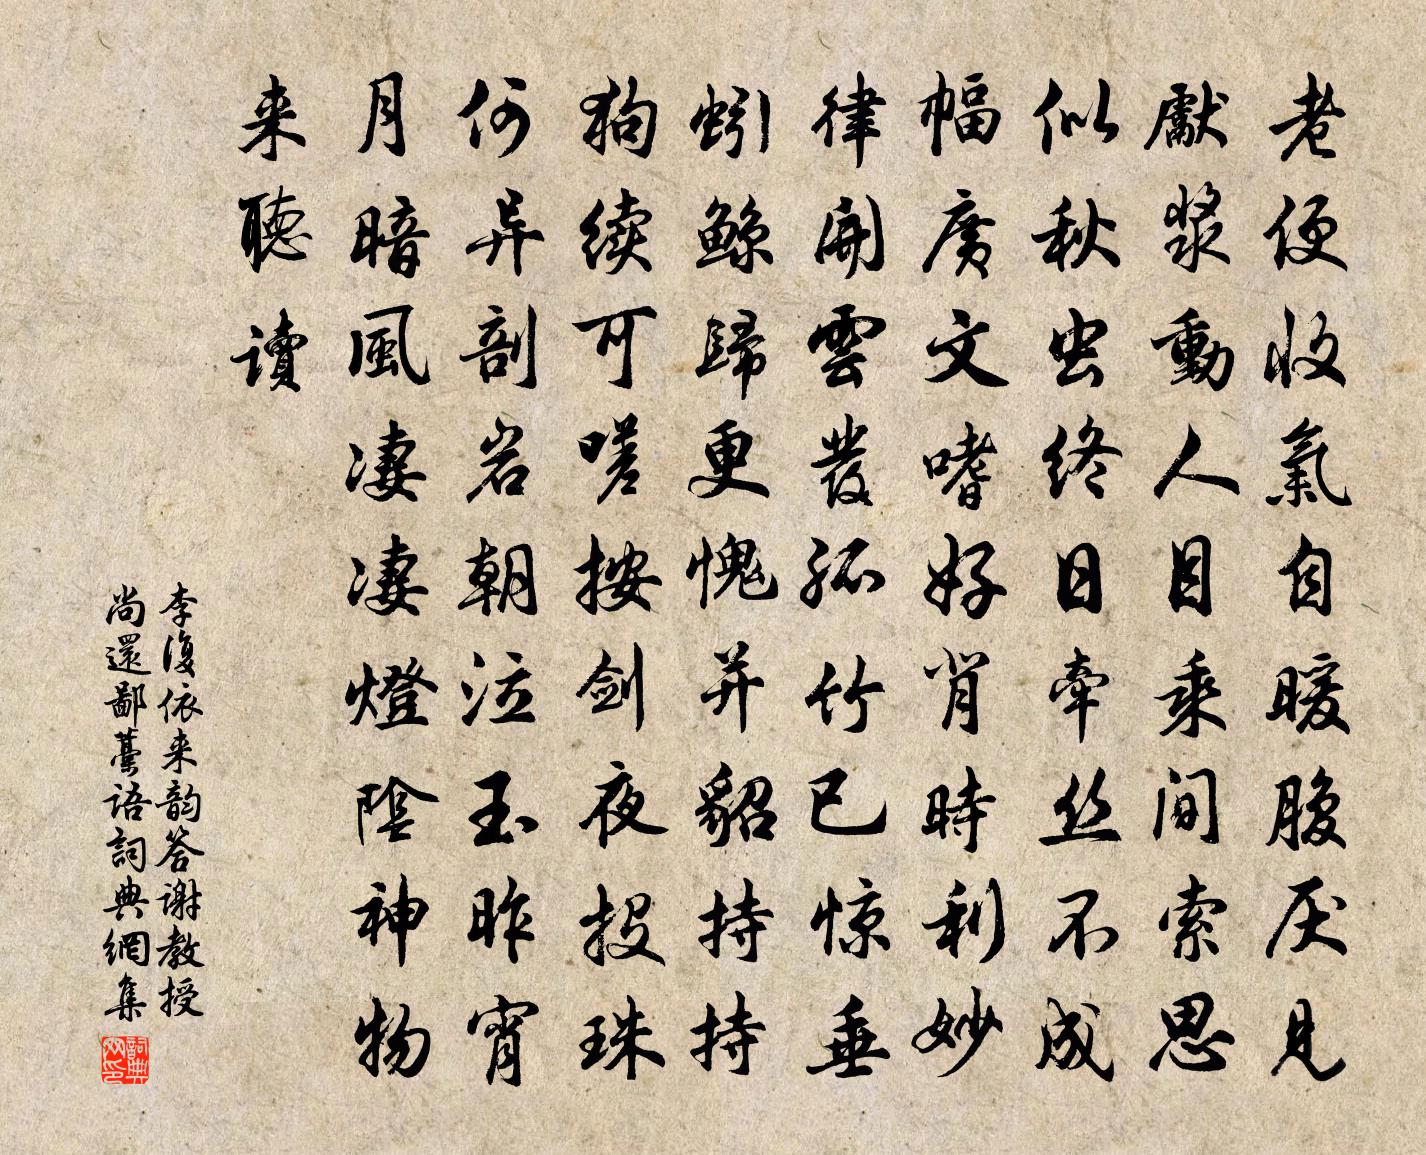 老便收氣自暖腹厌見
獻漿動人目乘间索思
似秋虫终日牵丝不成
幅廣文嗜好肖時利妙
律開雲發孤竹已惊垂
蚓鲸歸更愧并貂持持
狗续可嗟按剑夜投珠
何异剖岩朝泣玉昨宵
月暗風凄凄燈陰神物
来聽读
李復依来韵答谢教授
尚還鄙藁语詞典網集
詞典网印